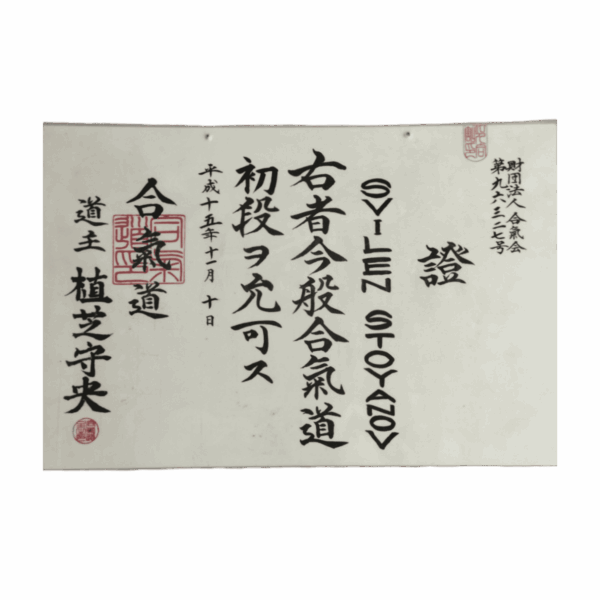 財団法人 合氣会
第九六三二七号
證
SVILEN STOYANOV
右者今般合氣道
初段ヲ允可ス
平成十五年十一月 十日
合氣道
道主 植芝守央